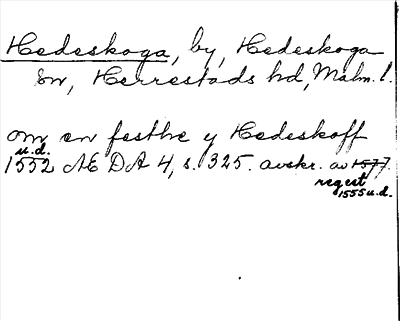 Hedeskoga, by, Hedeskoga
Sn, Herrestads hd, Malm. l.
om en festhe y Hedeskoff
u.d.
1552 NE DA 4, s. 325. avskr. av 1577.
regest
1555 u.d.